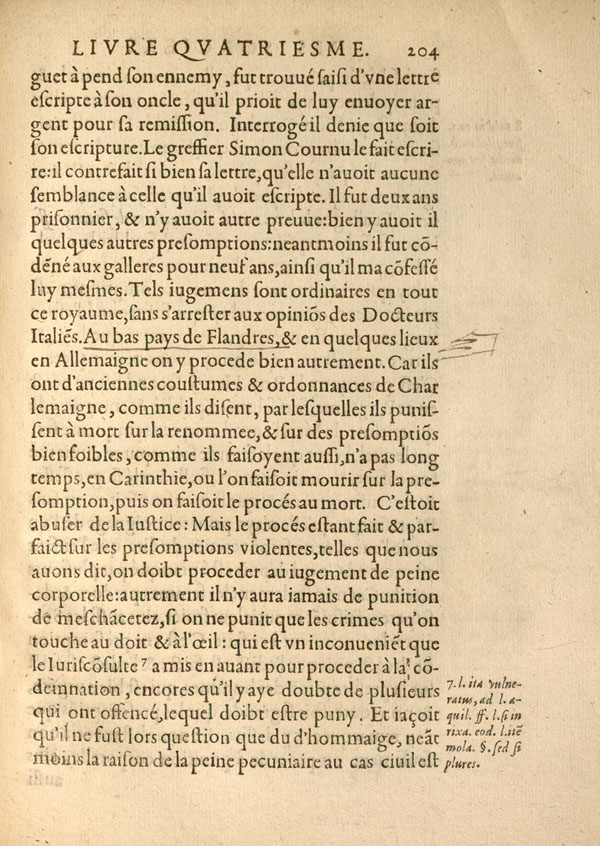 LIVRE QVATRIESME. 204
guet à pend ſon ennemy, fut trouué ſaiſi d'vne lettre
eſcripte à ſon oncle, qu'il prioit de luy enuoyer ar-
gent pour ſa remiſſion. Interrogé il denie que ſoit
ſon eſcripture. Le greffier Simon Cournu le fait eſcri-
re: il contrefait ſi bien ſa lettre, qu'elle n'auoit aucune
ſemblance à celle qu'il auoit eſcripte. Il fut deux ans
priſonnier, & n'y auoit autre preuue: bien y auoit il
quelques autres preſomptions: neantmoins il fut cõ-
dẽné aux galleres pour neuf ans, ainſi qu'il ma cõfeſſé
luy meſmes. Tels iugemens ſont ordinaires en tout
ce royaume, ſans s'arreſter aux opiniõs des Docteurs
Italiẽs. Au bas pays de Flandres, & en quelques lieux
en Allemaigne on y procede bien autrement. Car ils
ont d'anciennes couſtumes & ordonnances de Char
lemaigne, comme ils diſent, par leſquelles ils puniſ-
ſent à mort ſur la renommee, & ſur des preſomptiõs
bien foibles, comme ils faiſoyent auſſi, n'a pas long
temps, en Carinthie, ou l'on faiſoit mourir ſur la pre-
ſomption, puis on faiſoit le procés au mort. C'eſtoit
abuſer de la Iuſtice: Mais le procés eſtant fait & par-
faict ſur les preſomptions violentes, telles que nous
auons dit, on doibt proceder au iugement de peine
corporelle: autrement il n'y aura iamais de punition
de meſchãcetez, ſi on ne punit que les crimes qu'on
touche au doit & à l'œil: qui eſt vn inconueniẽt que
le Iuriſcõſulte⁷ a mis en auant pour proceder à la cõ-
demnation, encores qu'il y aye doubte de pluſieurs
qui ont offencé, lequel doibt eſtre puny. Et iaçoit
qu'il ne fuſt lors queſtion que du d'hommaige, neãt
moins la raiſon de la peine pecuniaire au cas ciuil eſt
7. l. ita vulne-
ratus, ad l. a-
quil. ff. l. ſi in
rixa. eod. l. itẽ
mola. §. ſed ſi
plures.